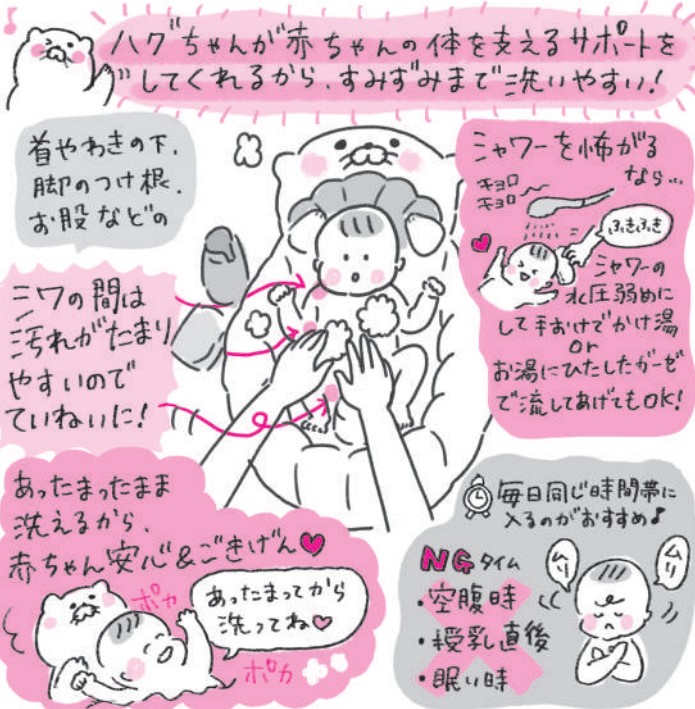 ハグちゃんが赤ちゃんの体を支えるサポートを
してくれるから、すみずみまで洗いやすい!
首やわきの下、
脚のつけ根、
お股などの
シワの間は
汚れがたまり
やすいので
ていねいに!
シャワーを怖がる
なら…
キョロ
キョロ
ふきふき
シャワーの
水圧弱めに
して手おけでかけ湯
or
お湯にひたしたガーゼ
で流してあげてもOK!
あったまったまま
洗えるから、
赤ちゃん安心&ごきげん♥
ポカ
あったまってから
洗ってね♡
ポカ
毎日同じ時間帯に
入るのがおすすめ♪
NGタイム
・空腹時
・授乳直後
・眠い時
ムリ
ムリ